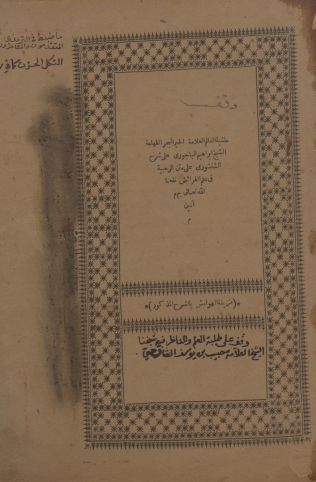 وقف
حاشية العالم العلامة الحبر البحر الفهامة
الشيخ ابراهيم الباجوري على شرح
الشنشوري على متن الرحبية
في علم الفرائض نفعنا
الله تعالى بهم
آمين
م
*(مزينة الهوامش بالشرح المذكور)*
وقف على طلبة العلم والناظر فيه شيخنا
الشيخ العلامة حبيب بن يوسف